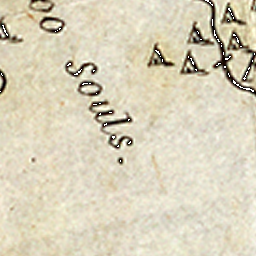 oo
souls.